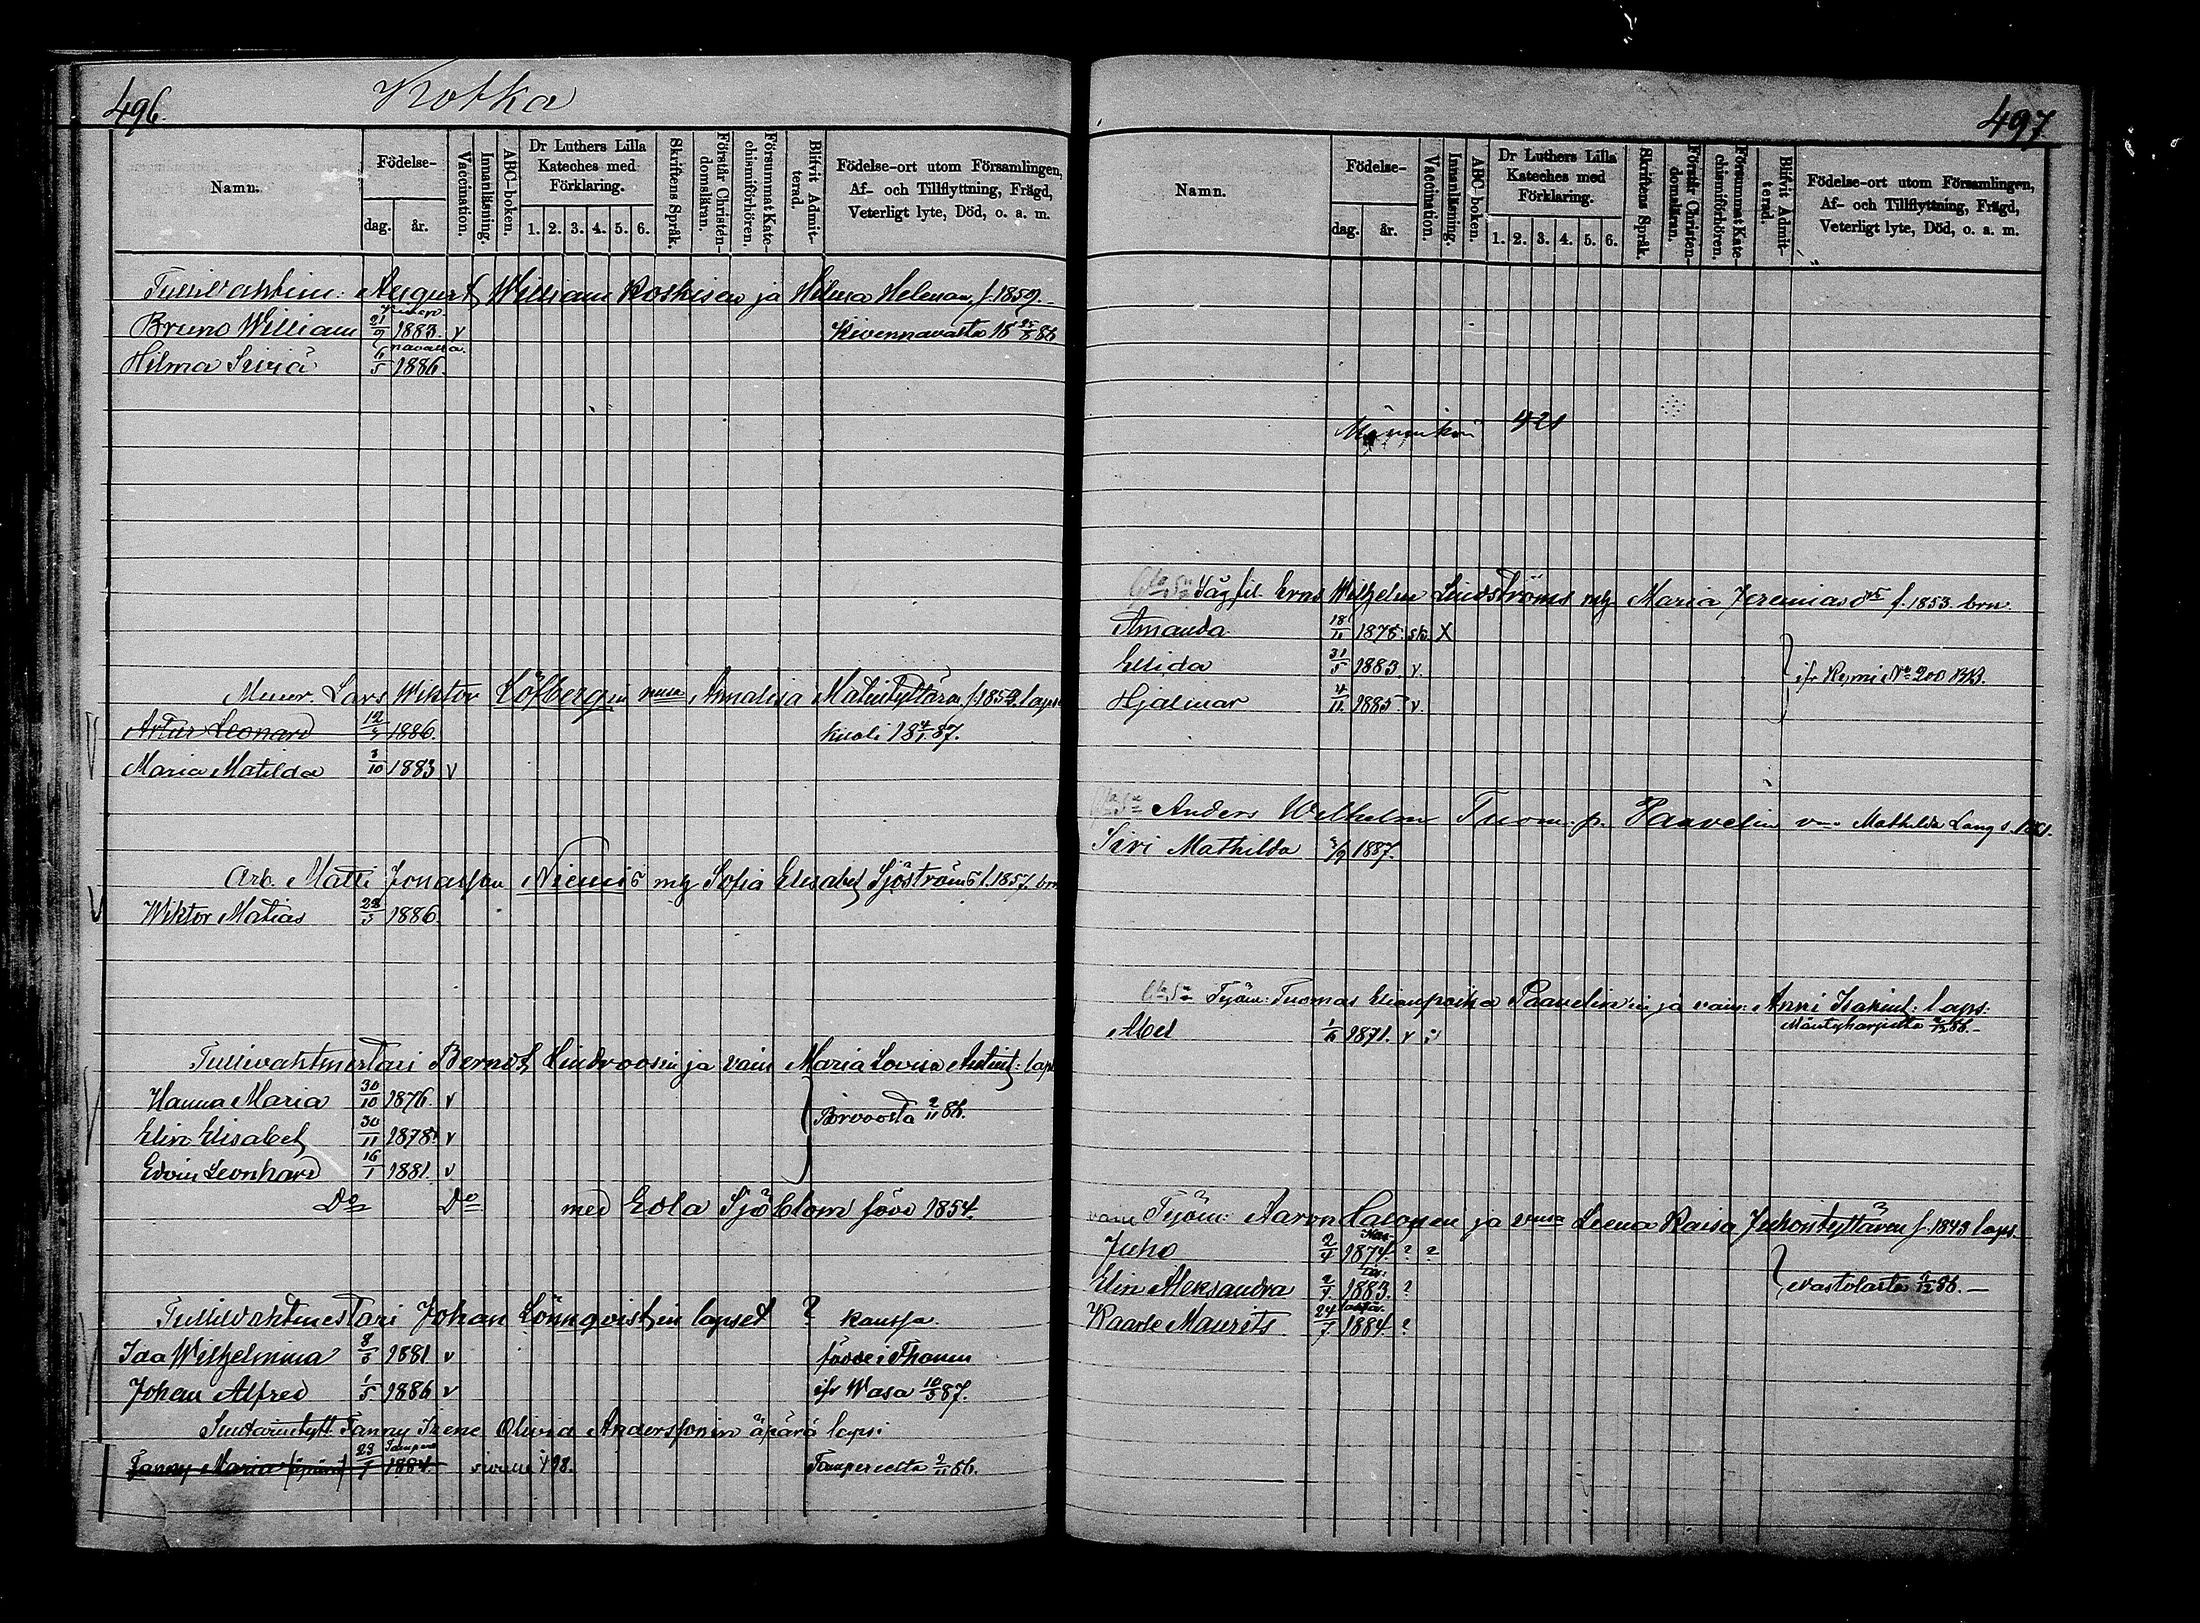 496.
Kotka
Namn.
Födelse-
dag.
år.
Vaccination.
Innanläsning.
ABC-boken.
Dr Luthers Lilla Kateches med Förklaring.
1. 2. 3. 4. 5. 6.
Skriftens Språk.
Förstår Christendomsläran.
Försummat Katechismiförhören.
Blifvit Admitterad.
Födelse-ort utom Församlingen, Af- och Tillflyttning, Frägd, Veterligt lyte, Död, o. a. m.
August William Koskisen ja Hilma f. 1859.
Bruno William 21/9 1883. v Kivennavasta 18 25/8 86
Hilma 6/5 1886.
Muur. Lars Wiktor Löfbergin Amalija f. 1859. laps
Artur Leonard 12/5 1886. kuoli 18 4/1 87.
Maria Matilda 3/10 1883 v
Arb. Matti Jonasson Niemi s m h Sofia Elisabet Sjöström s f. 1857. brn
Wiktor Matias 28/5 1886.
Tullivahtmestari Berndt Lindroosin ja vaim Maria Lovisa laps
Hanna Maria 30/10 1876. v
Elin Elisabet 30/11 1878. v Borvoosta 2/11 86.
Edvin Leonhard 16/1 1881. v
Do Do med Edla Sjöblom född 1854.
Tullivahtmestari Johan Lönnqvistin lapset ? kanssa
Ida Wilhelmina 8/6 1881 v
Johan Alfred 1/5 1886 v ifr Wasa 10/5 87.
Fanny Irene Olivia Anderssonin äpärä lapsi
Fanny Maria (äpärä) 23/7 1884. sivulle 498. Tampereelta 2/11 86.
497
Namn.
Födelse-
dag.
år.
Vaccination.
Innanläsning.
ABC-boken.
Dr Luthers Lilla Kateches med Förklaring.
1. 2. 3. 4. 5. 6.
Skriftens Språk.
Förstår Christendomsläran.
Försummat Katechismiförhören.
Blifvit Admitterad.
Födelse-ort utom Församlingen, Af- och Tillflyttning, Frägd, Veterligt lyte, Död, o. a. m.
421
Wilhelm Lindströms m h Maria Jeremiasdr f. 1853. brn.
Amanda 18/11 1875. X
Elida 31/5 1883 v. ifr Kemi No 200
Hjalmar 4/11 1885. v.
Anders Wilhelm Tuom. p. Paavelin Mathilda Lang
Siri Mathilda 3/9 1887.
Työm: Tuomas Eliaanpoika Paavelin'in ja vaim: Anni Isakint: laps:
Abel 1/6 1871. v Mäntyharjulta 2/12 86.
Työm: Aaron Calonen ja vmo Leena Kaisa Juhontyttären f. 1843 laps.
Juho 2/4 1874. ? ?
Elin Aleksandra 2/7 1883. ?
Kaarle Maurits 24/7 1884. ?